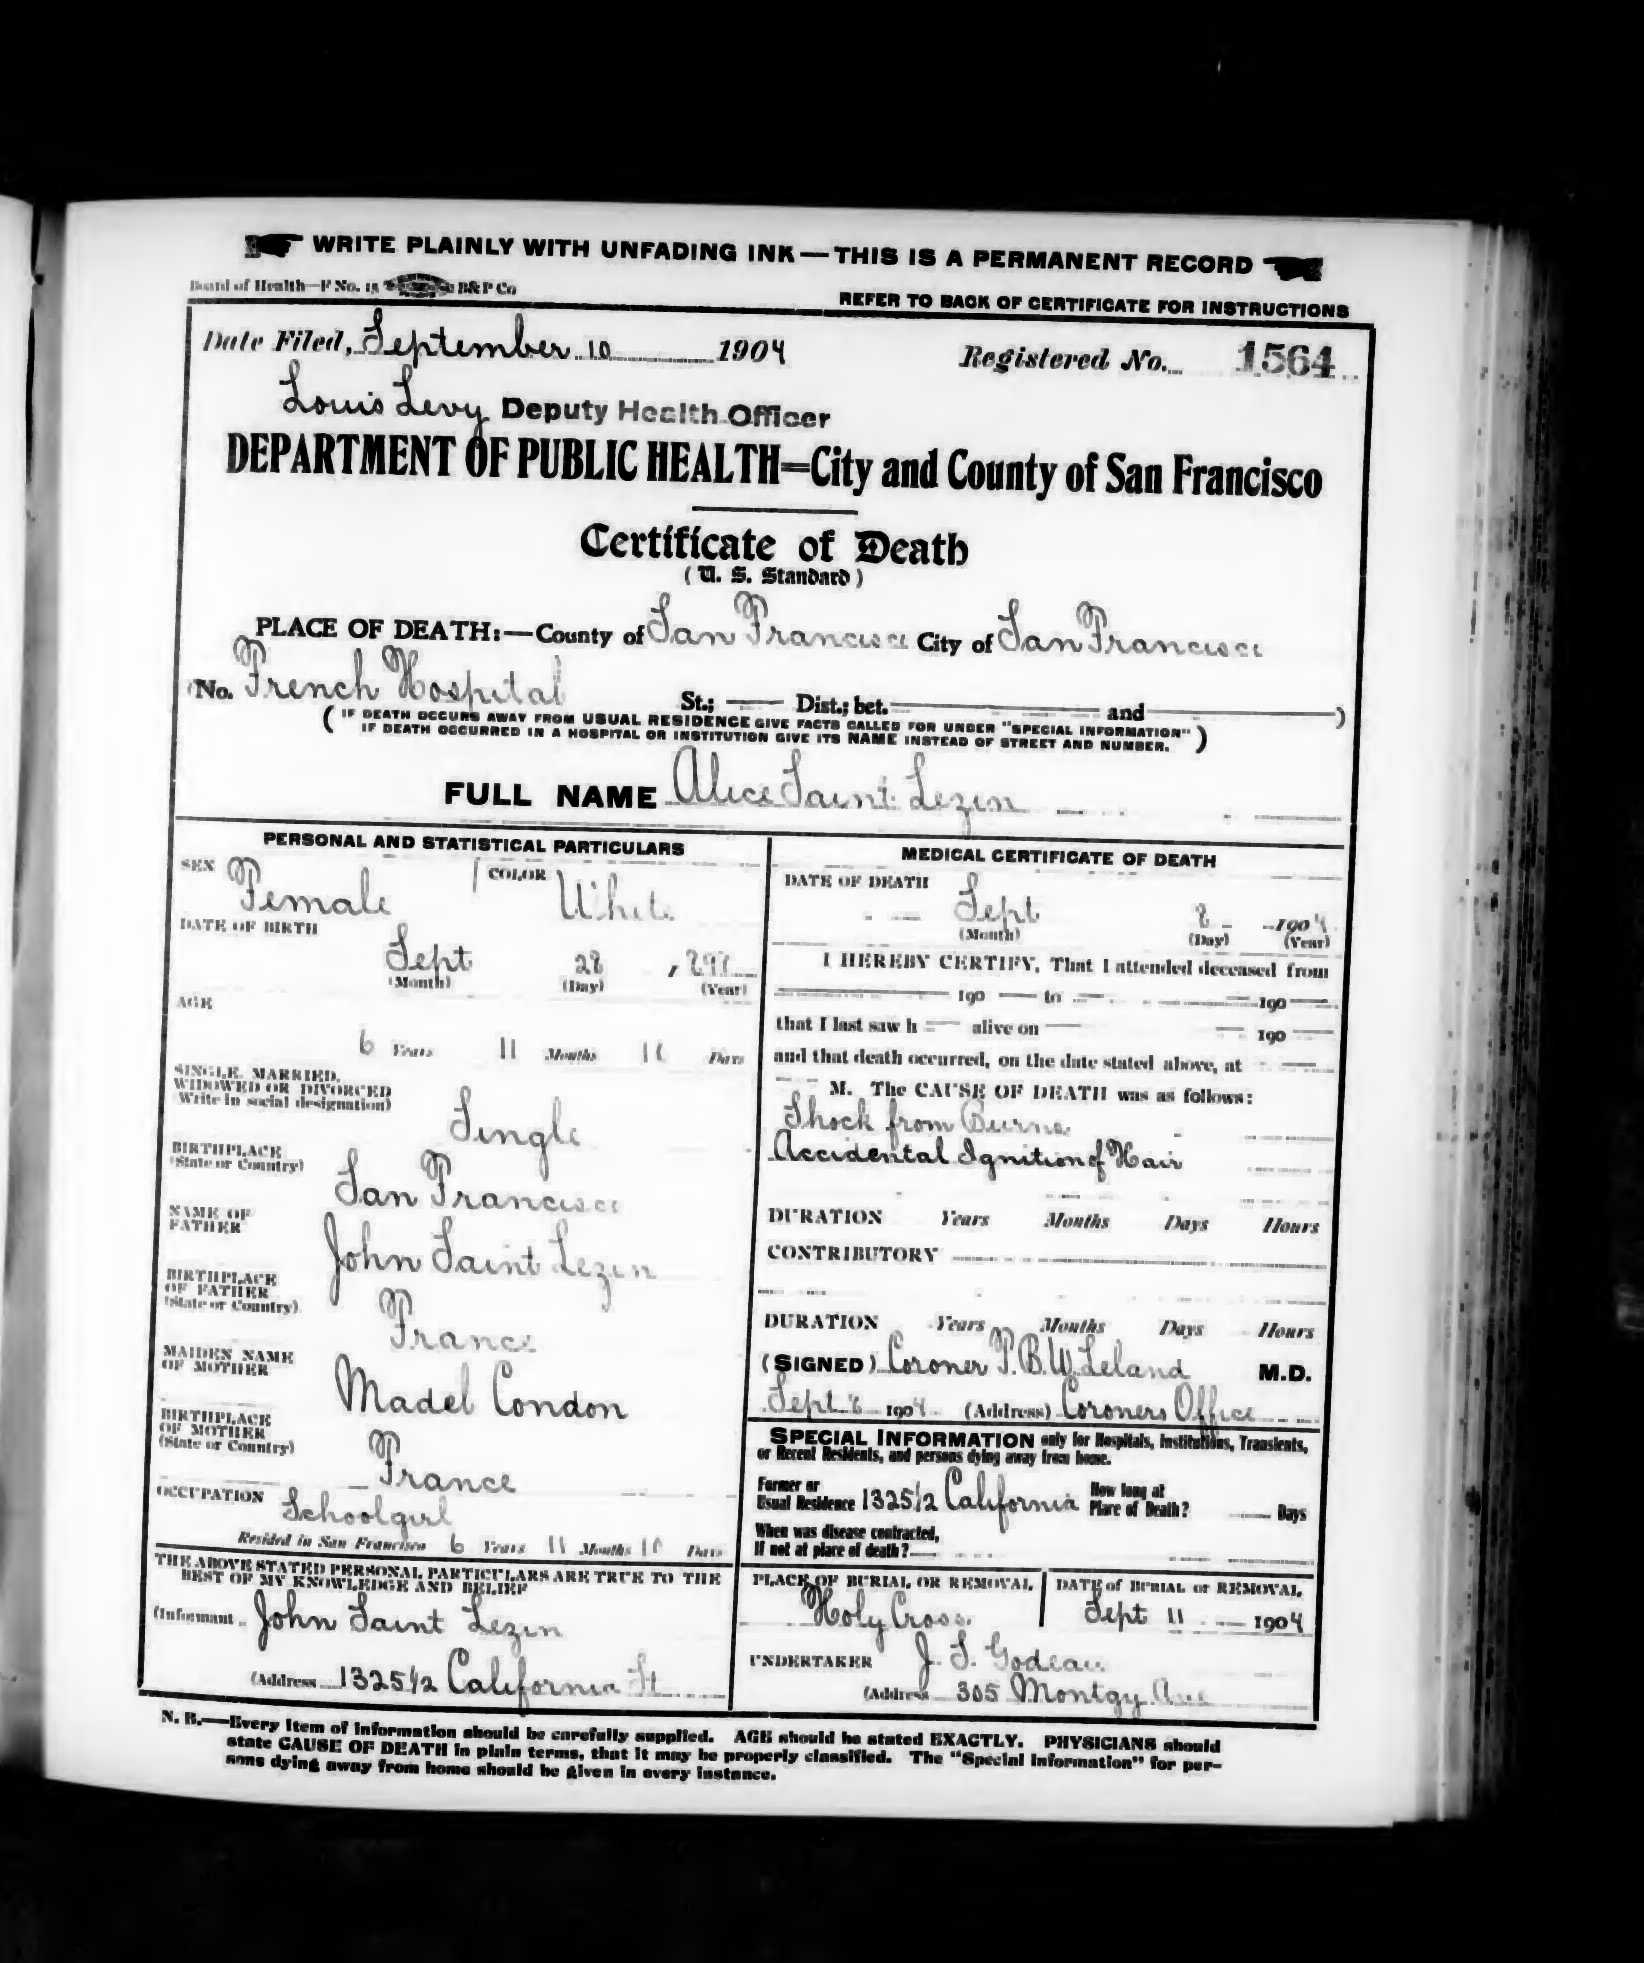 WRITE PLAINLY WITH UNFADING INK—THIS IS A PERMANENT RECORD
Board of Health—F No. 15 B&P Co
REFER TO BACK OF CERTIFICATE FOR INSTRUCTIONS
Date Filed, September 10 1904 Registered No. 1564
Louis Levy Deputy Health Officer
DEPARTMENT OF PUBLIC HEALTH=City and County of San Francisco
Certificate of Death
(U. S. Standard)
PLACE OF DEATH:—County of San Francisco City of San Francisco
(No. French Hospital St.; —— Dist.; bet. —— and ——)
(IF DEATH OCCURS AWAY FROM USUAL RESIDENCE GIVE FACTS CALLED FOR UNDER "SPECIAL INFORMATION"
IF DEATH OCCURRED IN A HOSPITAL OR INSTITUTION GIVE ITS NAME INSTEAD OF STREET AND NUMBER.)
FULL NAME Alice Saint Lezin
PERSONAL AND STATISTICAL PARTICULARS
SEX Female COLOR White
DATE OF BIRTH
Sept 28 , 897
(Month) (Day) (Year)
AGE
6 Years 11 Months 10 Days
SINGLE, MARRIED,
WIDOWED OR DIVORCED
(Write in social designation) Single
BIRTHPLACE
(State or Country) San Francisco
NAME OF
FATHER John Saint Lezin
BIRTHPLACE
OF FATHER
(State or Country) France
MAIDEN NAME
OF MOTHER Madel Condon
BIRTHPLACE
OF MOTHER
(State or Country) France
OCCUPATION Schoolgirl
Resided in San Francisco 6 Years 11 Months 10 Days
THE ABOVE STATED PERSONAL PARTICULARS ARE TRUE TO THE
BEST OF MY KNOWLEDGE AND BELIEF
(Informant John Saint Lezin
(Address 1325 1/2 California St
MEDICAL CERTIFICATE OF DEATH
DATE OF DEATH
Sept 8 1904
(Month) (Day) (Year)
I HEREBY CERTIFY, That I attended deceased from
—— 190 —— to —— 190 ——
that I last saw h —— alive on —— 190 ——
and that death occurred, on the date stated above, at ——
—— M. The CAUSE OF DEATH was as follows:
Shock from Burns
Accidental Ignition of Hair
DURATION Years Months Days Hours
CONTRIBUTORY
DURATION Years Months Days Hours
(SIGNED) Coroner T. B. W. Leland M.D.
Sept 1904 (Address) Coroners Office
SPECIAL INFORMATION only for Hospitals, Institutions, Transients,
or Recent Residents, and persons dying away from home.
Former or
Usual Residence 1325 1/2 California How long at
Place of Death? —— Days
When was disease contracted,
If not at place of death?
PLACE OF BURIAL OR REMOVAL
Holy Cross
DATE of BURIAL or REMOVAL
Sept 11 1904
UNDERTAKER J. S. Godeau
(Address 305 Montgy Ave
N. B.—Every item of information should be carefully supplied. AGE should be stated EXACTLY. PHYSICIANS should
state CAUSE OF DEATH in plain terms, that it may be properly classified. The "Special Information" for per-
sons dying away from home should be given in every instance.